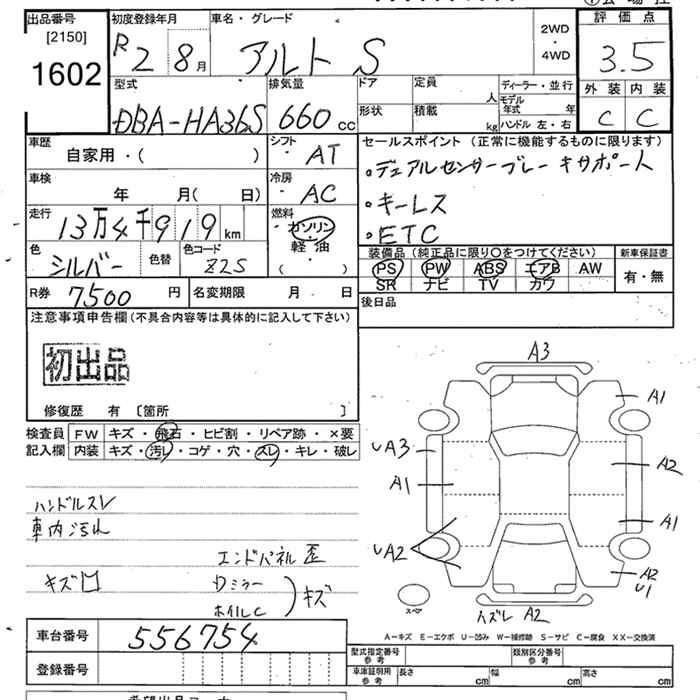 出品番号
[2150]
1602
初度登録年月
R 2 8月
車名・グレード
アルト S
2WD
・
4WD
評価点
3.5
外装 内装
C C
型式
DBA-HA36S
排気量
660 CC
ドア
形状
定員
人
積載
kg
ディーラー・並行
モデル年式 年
ハンドル 左・右
車歴
自家用・( )
シフト
・ AT
セールスポイント(正常に機能するものに限ります)
・デュアルセンサーブレーキサポート
・キーレス
・ETC
車検
年 月( 日)
冷房
・ AC
走行
13万4千919 km
燃料
ガソリン
軽油
( )
色
シルバー
色替
色コード
Z2S
装備品(純品に限り○をつけてください)
PS PW ABS エアB AW
SR ナビ TV カワ
新車保証書
有・無
R券 7500 円
名変期限 月 日
後日品
注意事項申告欄(不具合内容等は具体的に記入して下さい)
初出品
修復歴 有 〔箇所 〕
検査員
記入欄
FW キズ・飛石・ヒビ割・リペア跡・×要
内装 キズ・汚レ・コゲ・穴・スレ・キレ・破レ
ハンドルスレ
車内汚れ
エンドパネル歪
キズ
Dミラー
ホイルC
キズ
A3
A1
UA3
A1
A2
A1
UA2
A2
U1
スペア
ハズレ A2
A-キズ E-エクボ U-凹み W-補修跡 S-サビ C-腐食 XX-交換済
車台番号 556754
登録番号
型式指定番号
参考
類別区分番号
参考
車庫証明用
参考
長さ cm 幅 cm 高さ cm